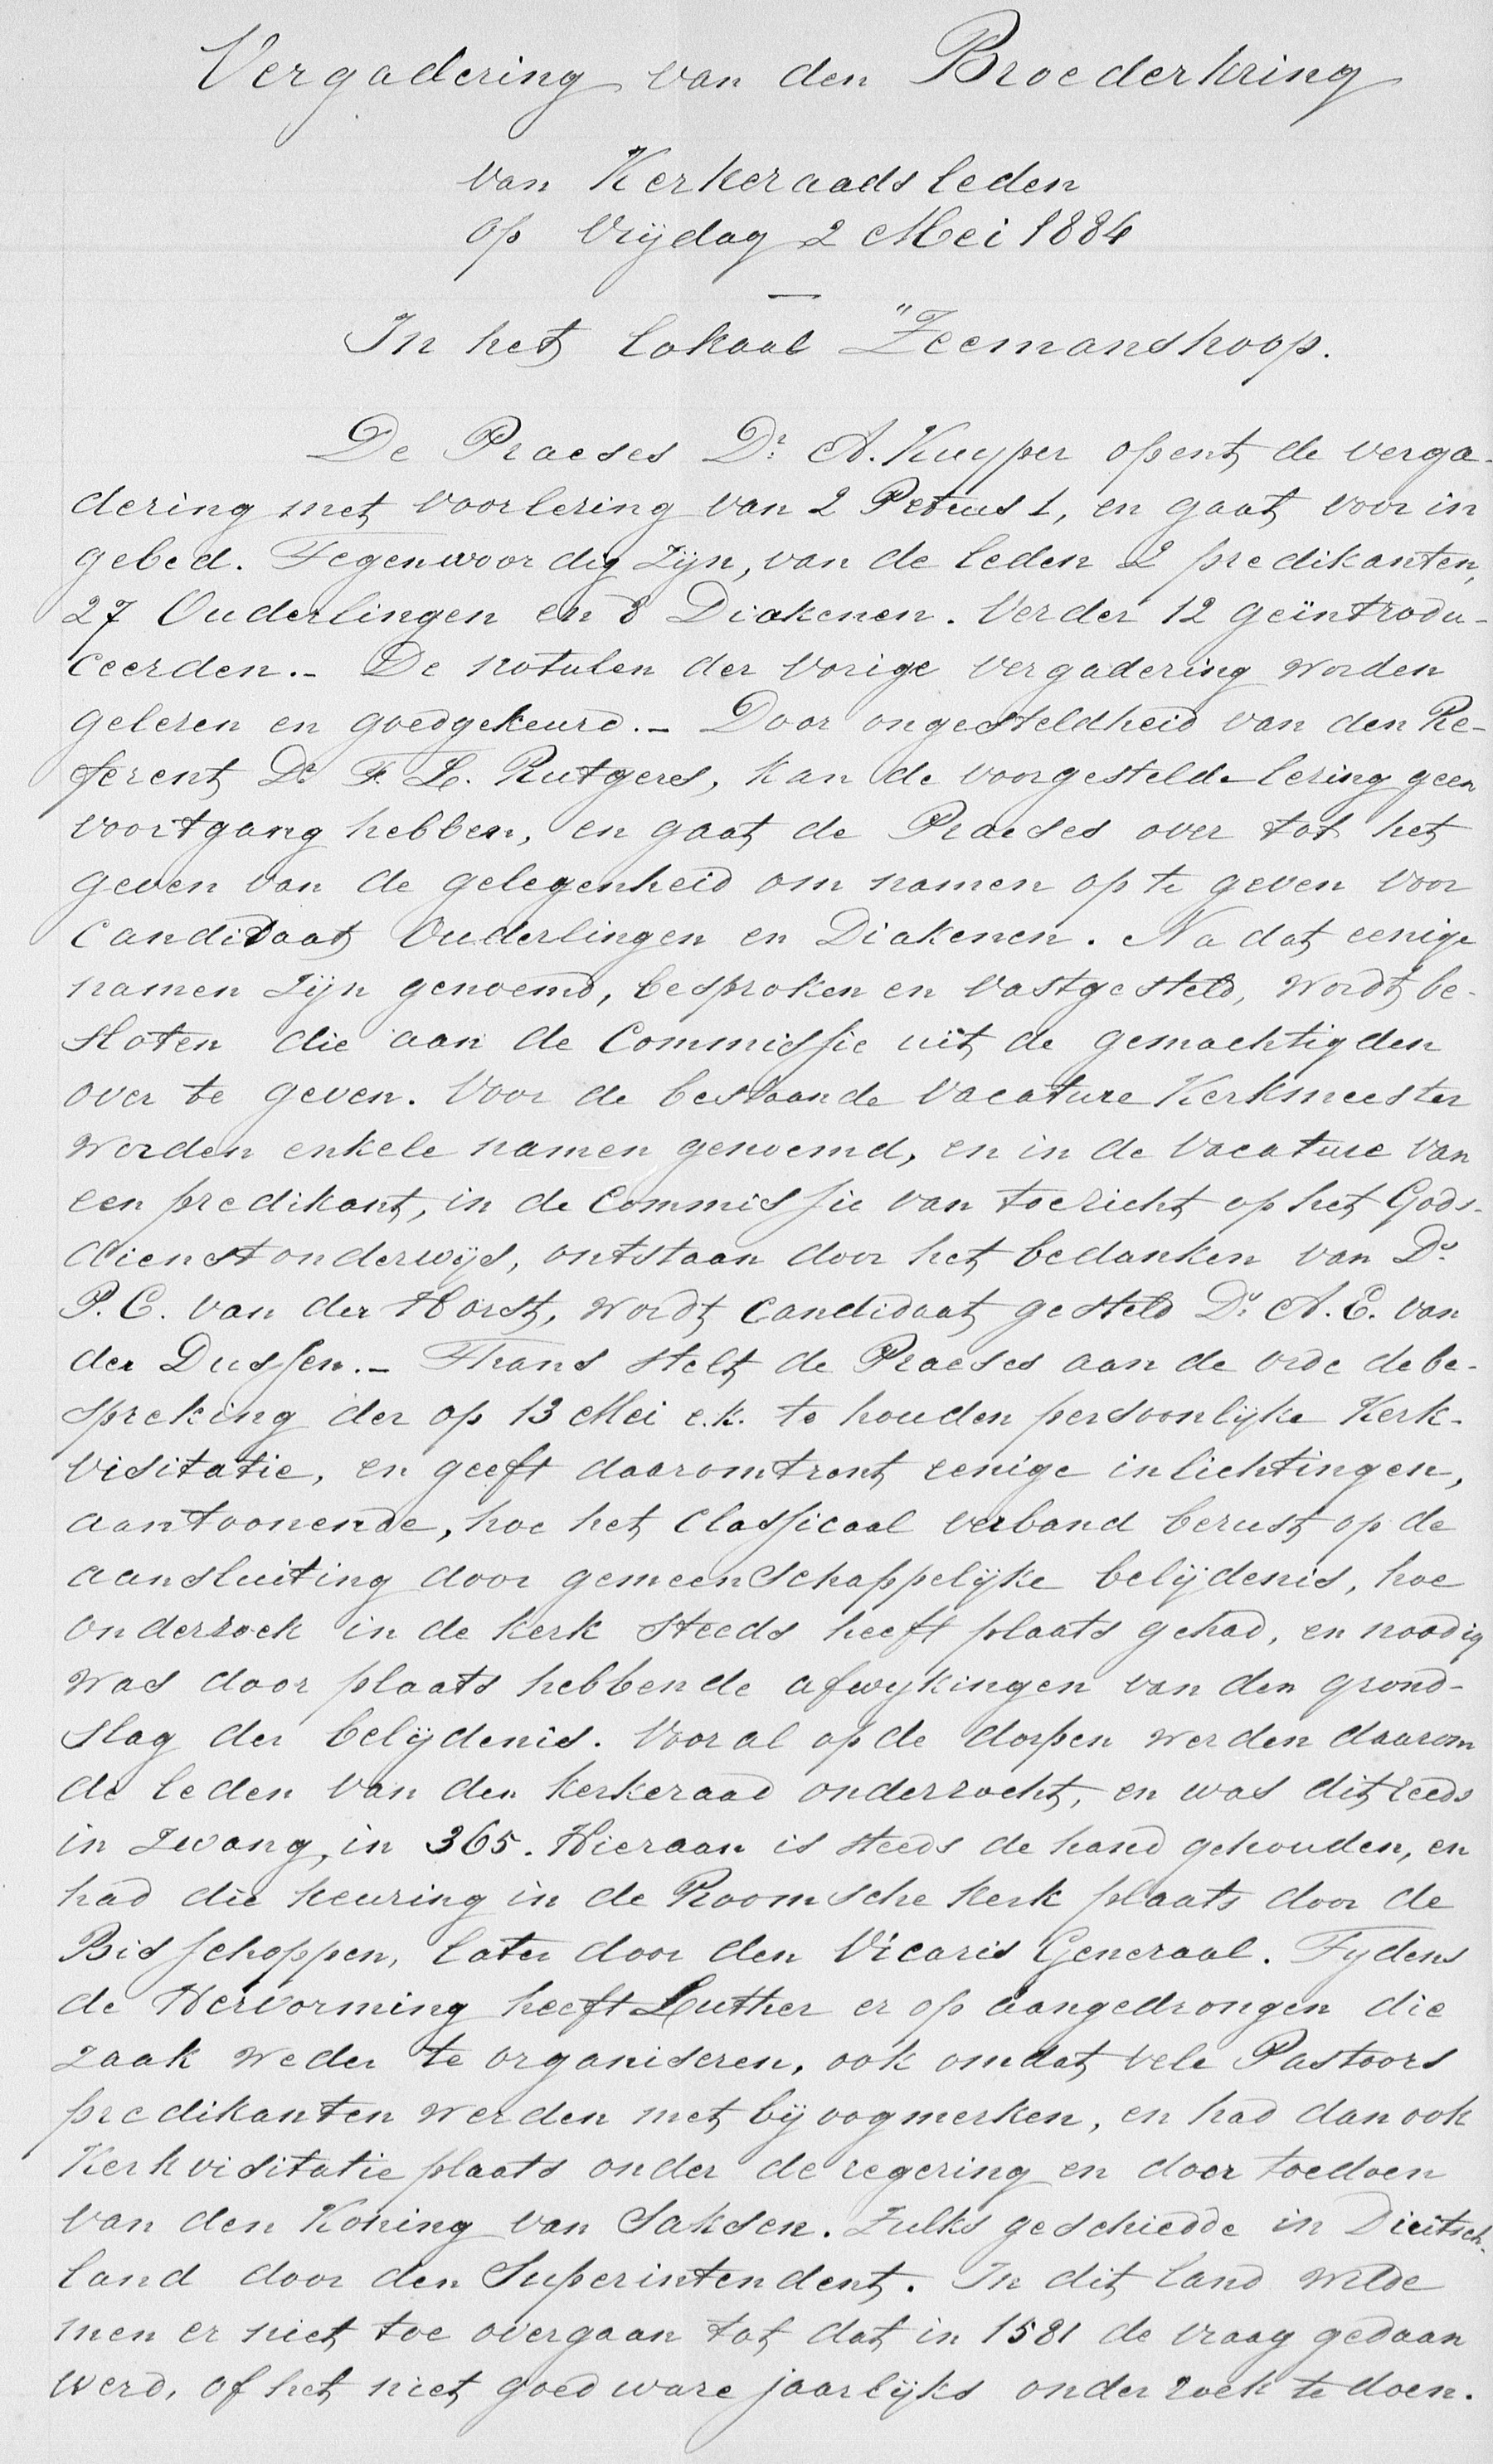 Vergadering van den Broederkring
van Kerkeraadsleden
op Vrijdag 2 Mei 1884
—
In het lokaal "Zeemanshoop.
De Praeses Dr. A. Kuyper opent de verga-
dering met voorlezing van 2 Petrus 1, en gaat voor in
gebed. Tegenwoordig zijn, van de leden 2 predikanten,
27 Ouderlingen en 8 Diakenen. Verder 12 geïntrodu-
ceerden.- De notulen der vorige vergadering worden
gelezen en goedgekeurd.- Door ongesteldheid van den Re-
ferent Dr. F. L. Rutgers, kan de voorgestelde lezing geen
voortgang hebben, en gaat de Praeses over tot het
geven van de gelegenheid om namen op te geven voor
Candidaat Ouderlingen en Diakenen. Na dat eenige
namen zijn genoemd, besproken en vastgesteld, wordt be-
sloten die aan de Commissie uit de gemachtigden
over te geven. Voor de bestaande vacature Kerkmeester
worden enkele namen genoemd, en in de vacature van
een predikant, in de Commissie van toezicht op het Gods-
dienstonderwijs, ontstaan door het bedanken van Ds.
P. C. van der Horst, wordt candidaat gesteld Ds. A. E. van
der Dussen.- Thans stelt de Praeses aan de orde de be-
spreking der op 13 Mei e.k. te houden persoonlijke Kerk-
visitatie, en geeft daaromtrent eenige inlichtingen,
aantoonende, hoe het classicaal verband berust op de
aansluiting door gemeenschappelijke belijdenis, hoe
onderzoek in de kerk steeds heeft plaats gehad, en noodig
was door plaats hebbende afwykingen van den grond-
slag der belijdenis. Vooral op de dorpen werden daarom
de leden van den kerkeraad onderzocht, en was dit reeds
in zwang, in 365. Hieraan is steeds de hand gehouden, en
had die keuring in de Roomsche kerk plaats door de
Bisschoppen, later door den Vicaris Generaal. Tydens
de Hervorming heeft Luther er op aangedrongen die
zaak weder te organiseren, ook omdat vele Pastoors
predikanten werden met bijoogmerken, en had dan ook
Kerkvisitatie plaats onder de regering en door toedoen
van den Koning van Saksen. Zulks geschiedde in Duitsch-
land door den Superintendent. In dit land wilde
men er niet toe overgaan tot dat in 1581 de vraag gedaan
werd, of het niet goed ware jaarlijks onderzoek te doen.